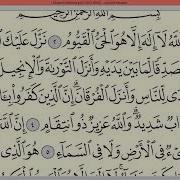 بِسْمِ ٱللَّهِ ٱلرَّحْمَٰنِ ٱلرَّحِيمِ
للَّهُ لَآ إِلَٰهَ إِلَّا هُوَ ٱلْحَىُّ ٱلْقَيُّومُ ٢ نَزَّلَ عَلَيْكَ ٱل
صَدِّقًا لِّمَا بَيْنَ يَدَيْهِ وَأَنزَلَ ٱلتَّوْرَىٰةَ وَٱلْإِنجِيلَ
دًى لِّلنَّاسِ وَأَنزَلَ ٱلْفُرْقَانَ إِنَّ ٱلَّذِينَ كَفَرُوا۟ بِـَٔا
ابٌ شَدِيدٌ وَٱللَّهُ عَزِيزٌ ذُو ٱنتِقَامٍ ٤ إِنَّ ٱللَّ
ىْءٌ فِى ٱلْأَرْضِ وَلَا فِى ٱلسَّمَآءِ ٥ هُوَ ٱلَّذِى